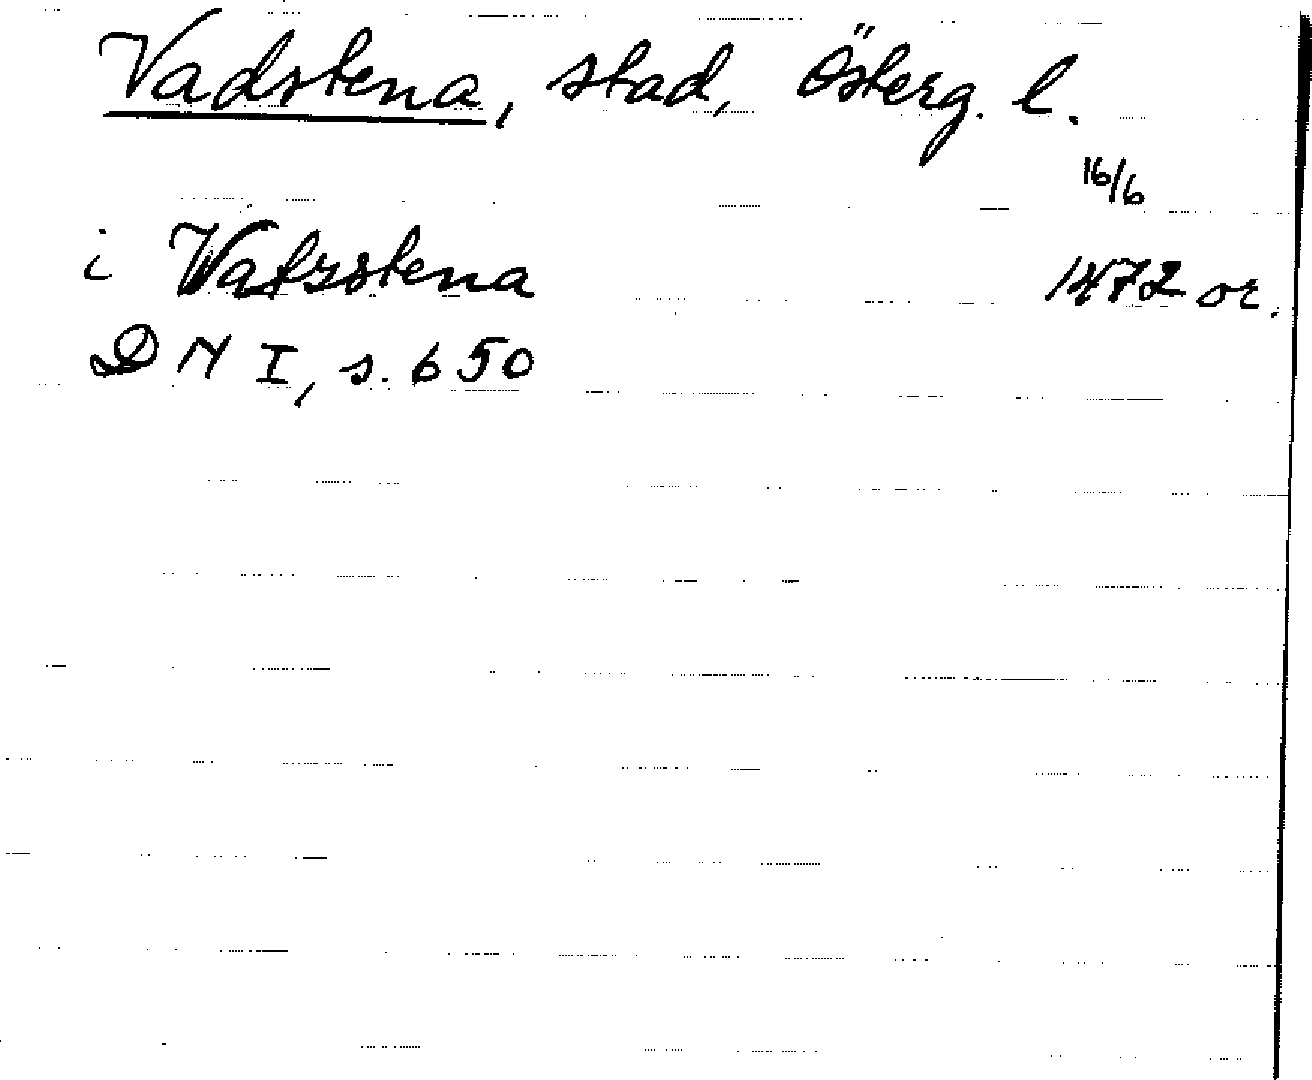 Vadstena, stad, Österg. l.
16/6
i Watzstena 1472 or.
DN I, s. 650